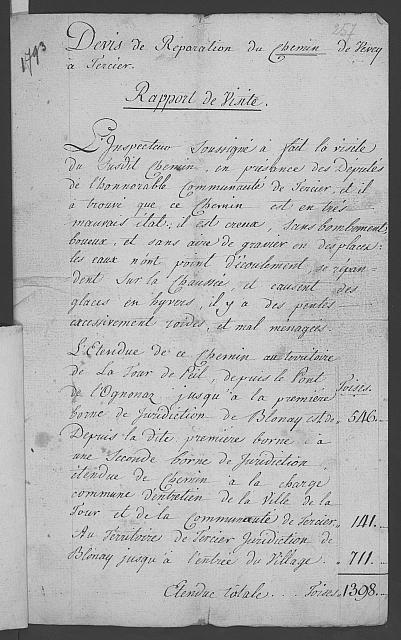 257
1793
Devis de Réparation du Chemin de Vevey
à Tercier.
Rapport de Visite.
L'Inspecteur Soussigné à fait la visite
du susdit Chemin, en présance des Députés
de l'honnorable Communauté de Tercier, et il
à trouvé que ce Chemin est en très
mauvais état; il est creux, sans bombement
boueux, et sans aire de gravier en des places:
les eaux n'ont point d'écoulement, se répan-
dent sur la Chaussée, et causent des
glaces en hyvers, il y a des pentes
excessivement roides, et mal menagées.
L'Etendue de ce Chemin au territoire
de La Tour de Peil, depuis le Pont
de l'Ognonaz jusqu'à la première Toises.
borne de Juridiction de Blonay est de, 546.
Depuis la dite première borne à
une Seconde borne de Juridiction
étendue de Chemin à la charge
commune d'entretien de la Ville de la
Tour et de la Communauté de Tercier, " 141.
Au Territoire de Tercier Juridiction de
Blonay jusqu'à l'entrée du Village. " 711.
Etendue totale .... Toises 1398.